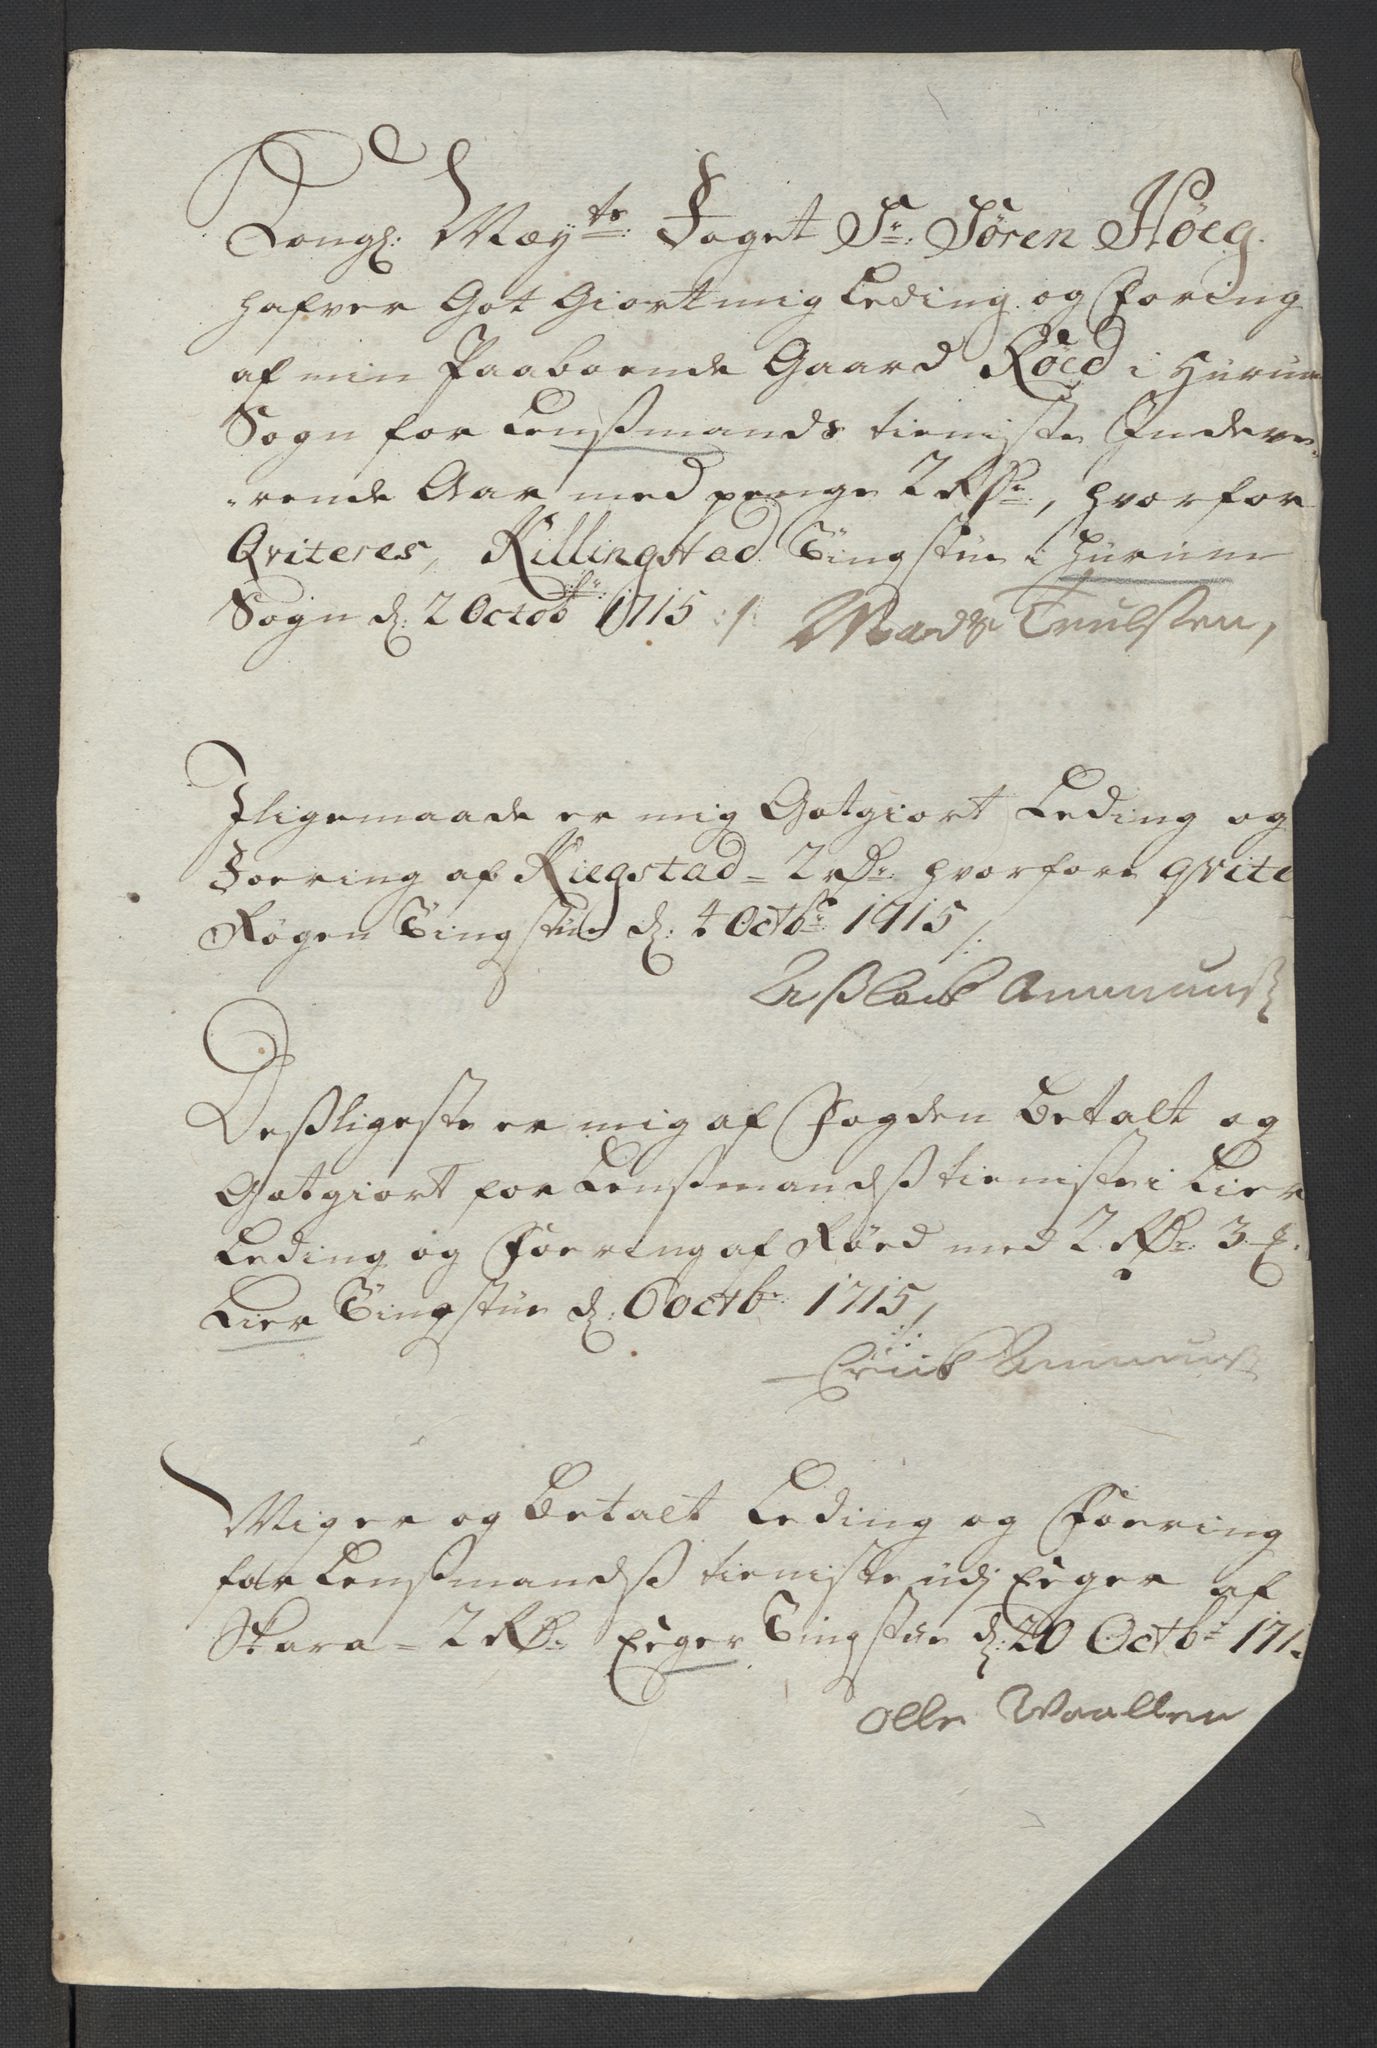 Kongl: May<sup>ts</sup>: Foget Sr: Sören Höeg.
hafver Got Giort mig Leding og Foring
af min Paaboende Gaard Röed i Hurum
Sogn for Lenßmands tieniste Indeve-
-rende Aar med penge 2 Rdr:, hvorfor
Qviteres, Killingstad Tingstue i Hurum
Sogn d: 2 Octobr: 1715 :/:
Mads Trulsen,
Iligemaade er mig Gotgiort Leding og
Foering af Kiegstad = 2 Rdr: hvorfore qvite
Rögen Tingstue d: 4 Octbr: 1715 /:
Aßlack Ammunß
Deßligeste er mig af Fogden Betalt og
Gotgiort for Lenßmandß tieniste i Lier
Leding og Foering af Röed med 2 Rdr: 3
Lier Tingstue d: 6 octbr: 1715,
Erick Ammunß
Mig er og Betalt Leding og Foering
for Lenßmandß tieniste udj Eeger af
Skara = 2 Rdr: Eeger Tingstue d: 20 Octbr: 171
Olle Waallen